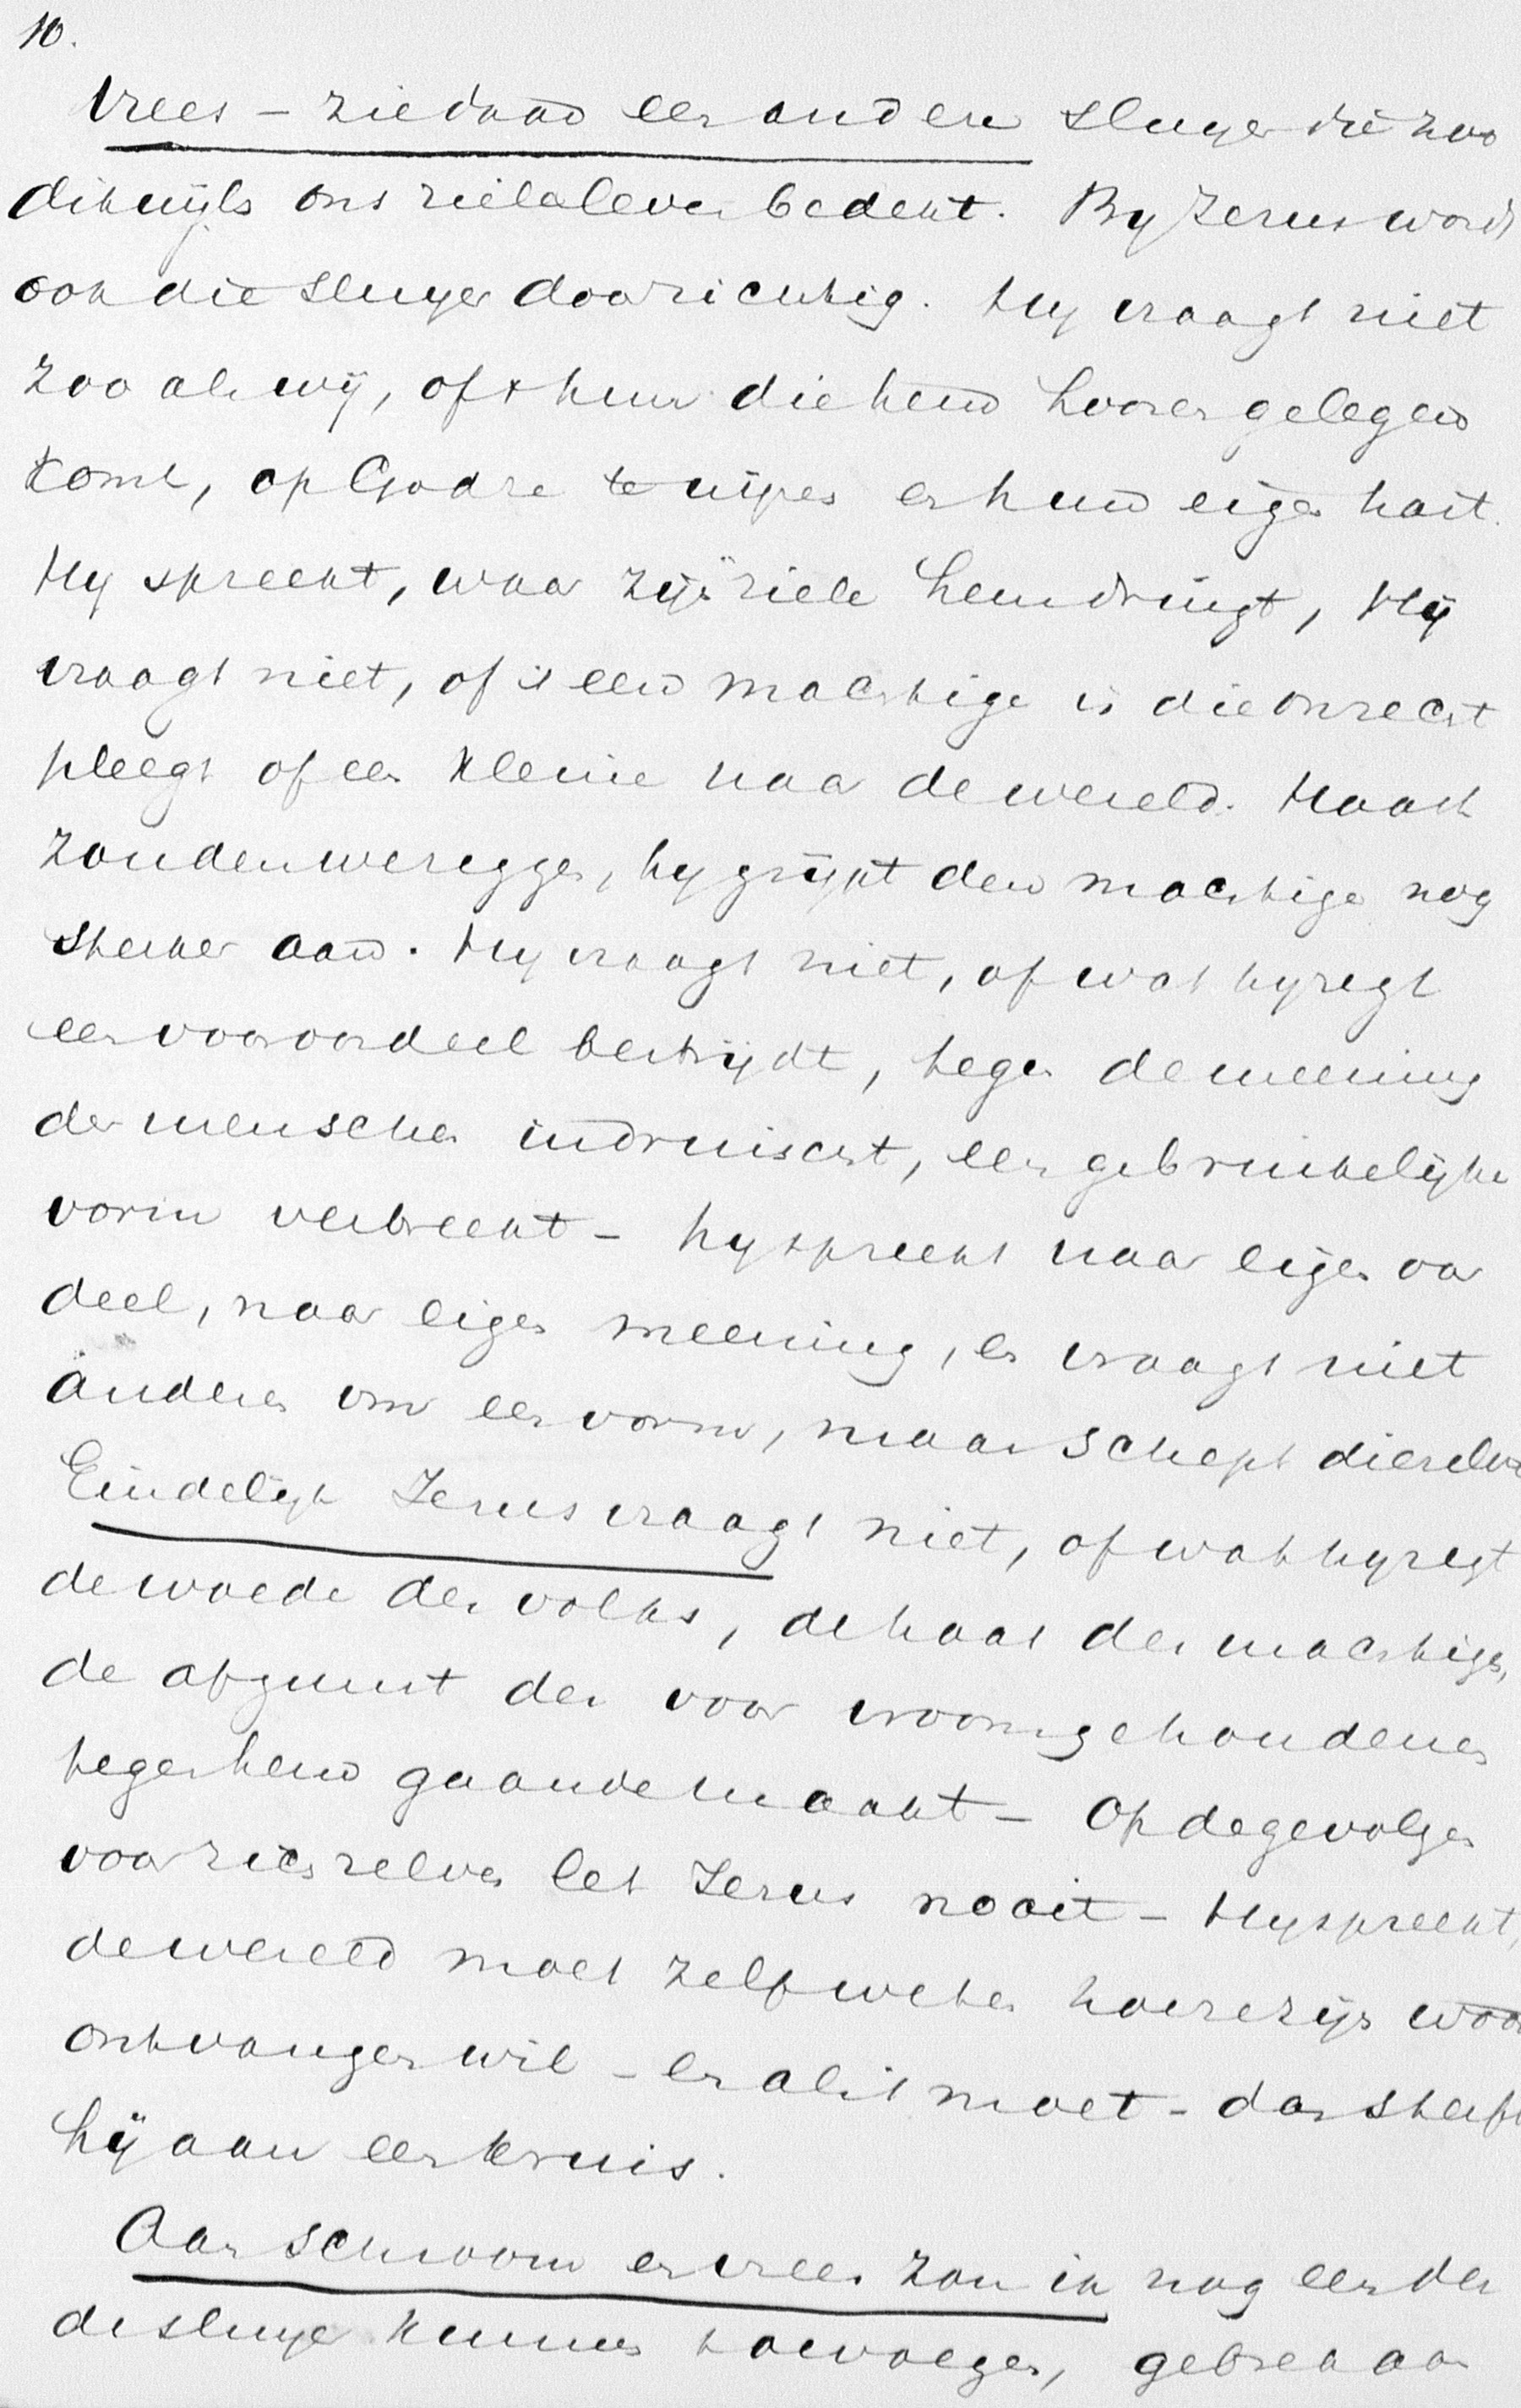 10.
Vrees – ziedaar een anderen sluyer die zoo
dikwijls ons zieleleven bedekt. By Jezus wordt
ook die sluyer doorzichtig. Hy vraagt niet
zoo als wij, of 't hun die hem hooren gelegen
komt, op Gods te wijzen en hun eigen hart.
Hy spreekt, waar zijn ziele hem dringt, Hij
vraagt niet, of 't een machtige is die onrecht
pleegt of een kleine naar de wereld. Haast
zouden we zeggen, hy grijpt den machtige nog
sterker aan. Hy vraagt niet, of wat hy zegt
een vooroordeel bestrijdt, tegen de meening
der menschen indruischt, een gebruikelijken
vorm verbreekt – hy spreekt naar eigen oor
deel, naar eigen meening, en vraagt niet
anderen om een vorm, maar schept dien zelve
Eindelijk Jezus vraagt niet, of wat hy zegt
de woede des volks, de haat der machtigen,
de afgunst der voor vroom gehoudenen
tegen hem gaande maakt – Op de gevolgen
voor zich zelven let Jezus nooit – Hy spreekt,
de wereld moet zelf weten hoe ze zijn woord
ontvangen wil – en als 't moet – dan sterft
hij aan een kruis.
Aan schroom en vrees zou ik nog een der
de sluyer kunnen toevoegen, gebrek aan